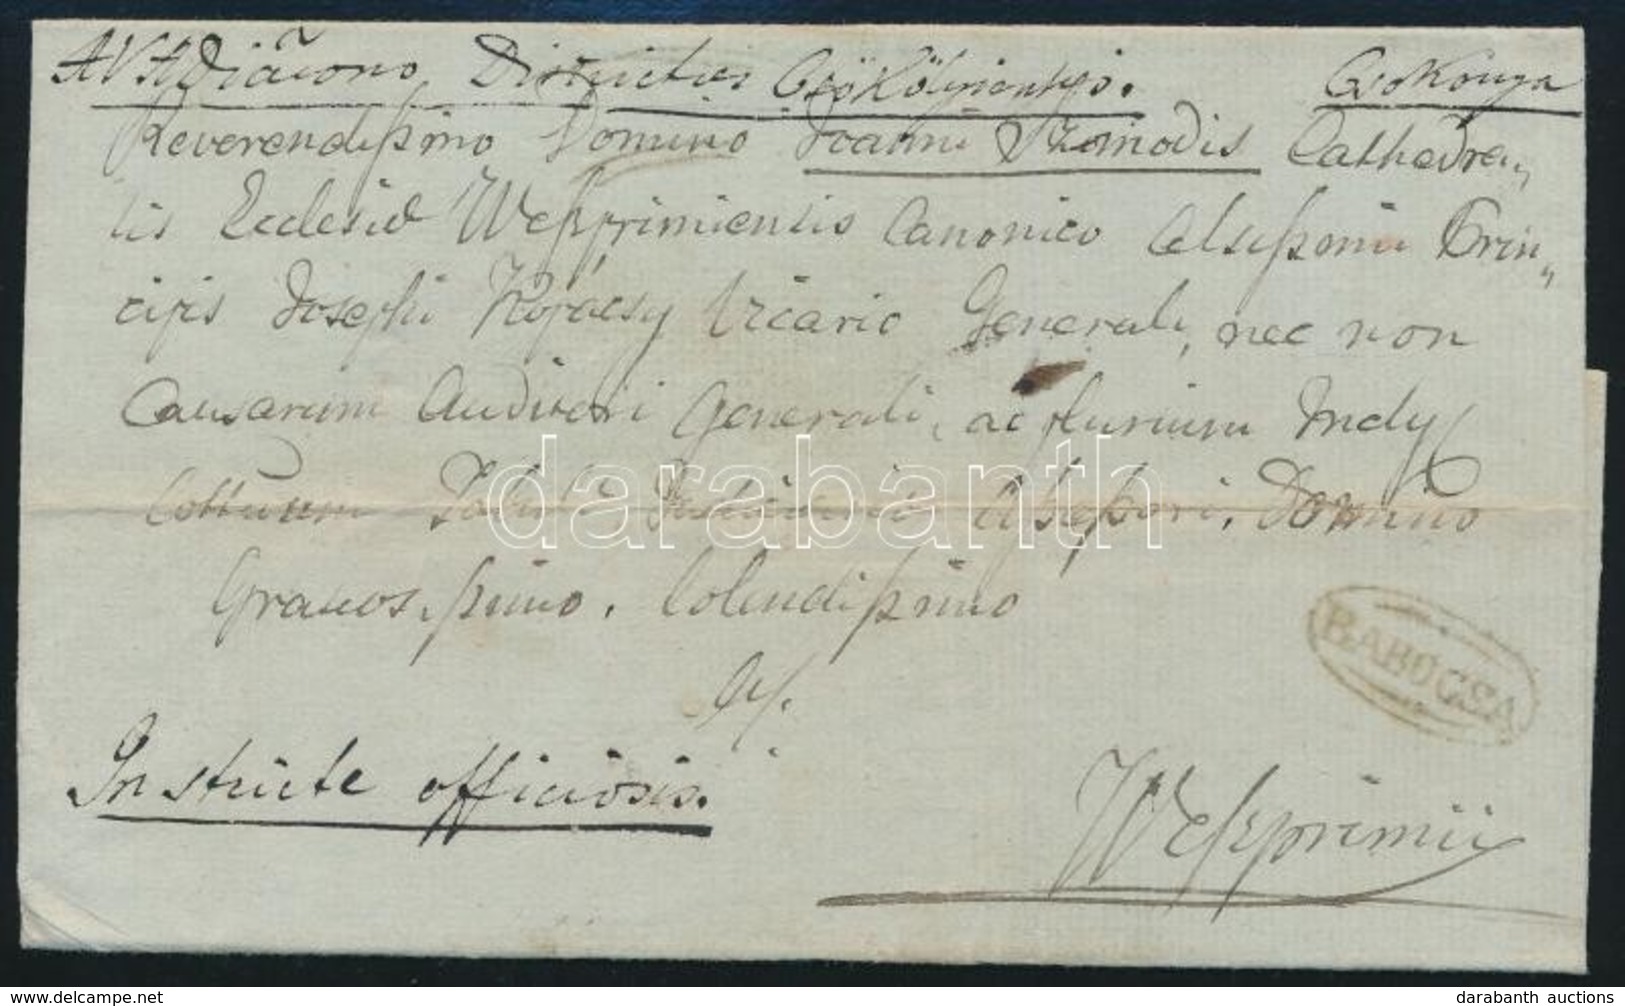 A V. A Diacono Districtus Csökölyiensis. Csokonya
Reverendissimo Domino Joanni Szomodis Cathedren„
tis Ecclesiæ Wesprimiensis Canonico Celsissimi Prin„
cipis Josephi Kopácsy Vicario Generali, nec non
Causarum Auditori Generali, ac plurium Incly
Cottuum Tabulæ Assessori. Domino
Gratiosissimo. Colendissimo
BABOCSA
In structe officiosis.
Wesprimii
darabanth
darabanth auctions